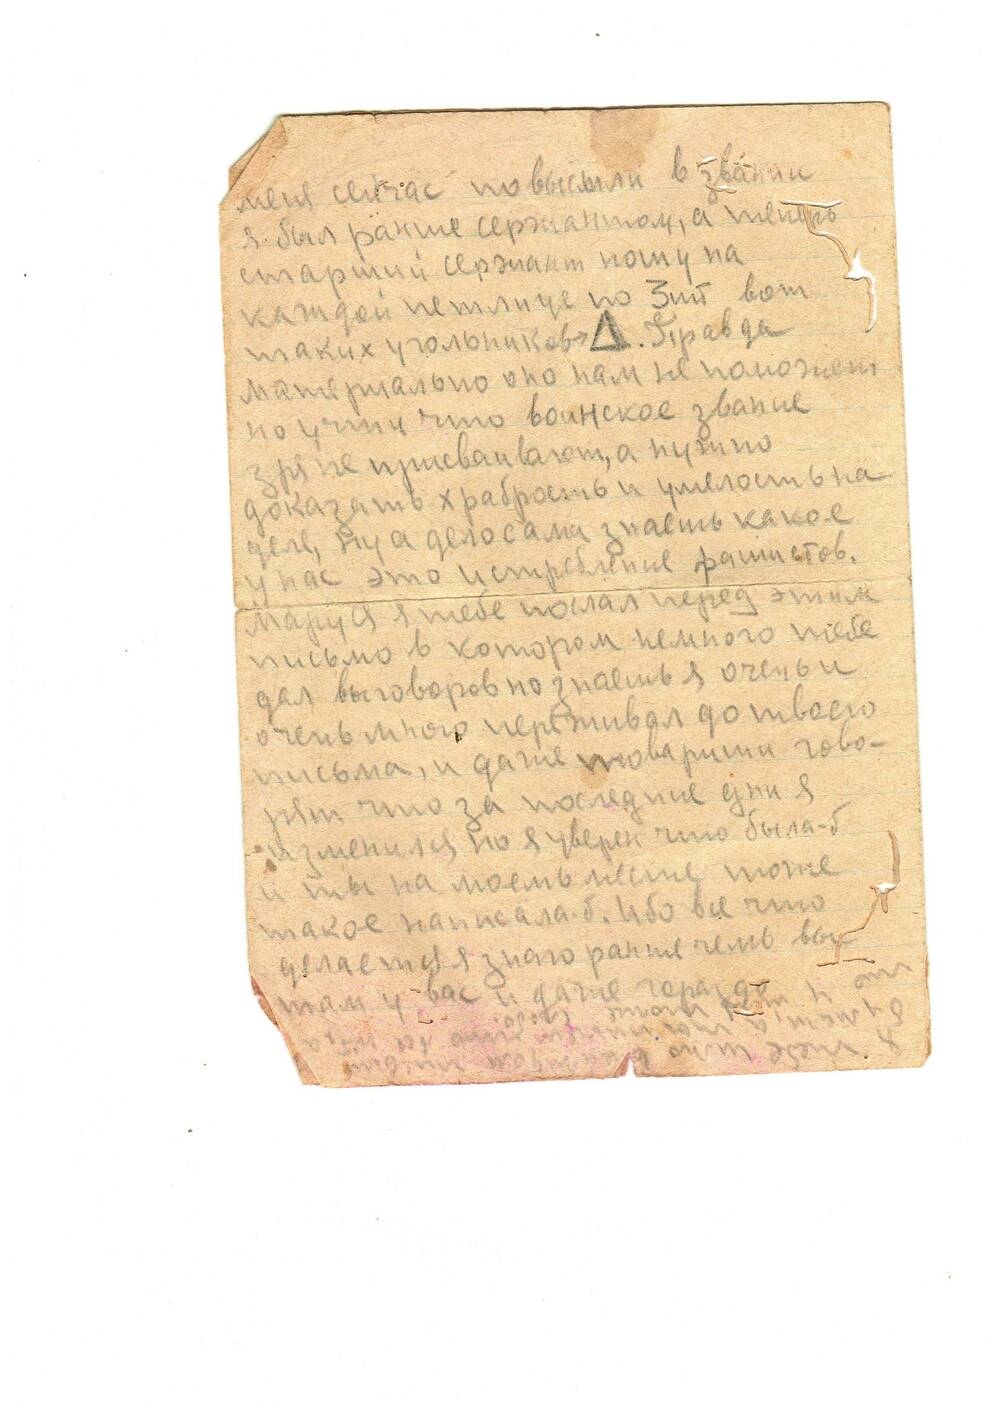 меня сейчас повысыли в звании
я был ранше сержантом, а теперь
старший сержант ношу на
каждой петлице по 3шт вот
таких угольников→ △. Правда
материально оно нам не поможет
но учти что воинское звание
зря не присваивают, а нужно
доказать храбрость и умелость на
деле, ну а дело сама знаешь какое
у нас это истребление фашистов.
Маруся я тебе послал перед этим
письмо в котором немного тебе
дал выговоров но знаешь я очень и
очень много переживал до твоего
письма, и даже товарищи гово-
рят что за последние дни я
изменился но я уверен что была-б
и ты на моемь месте тоже
такое написала-б. Ибо все что
делается я знаю ранше чемь вы
там у вас и даже гораздо